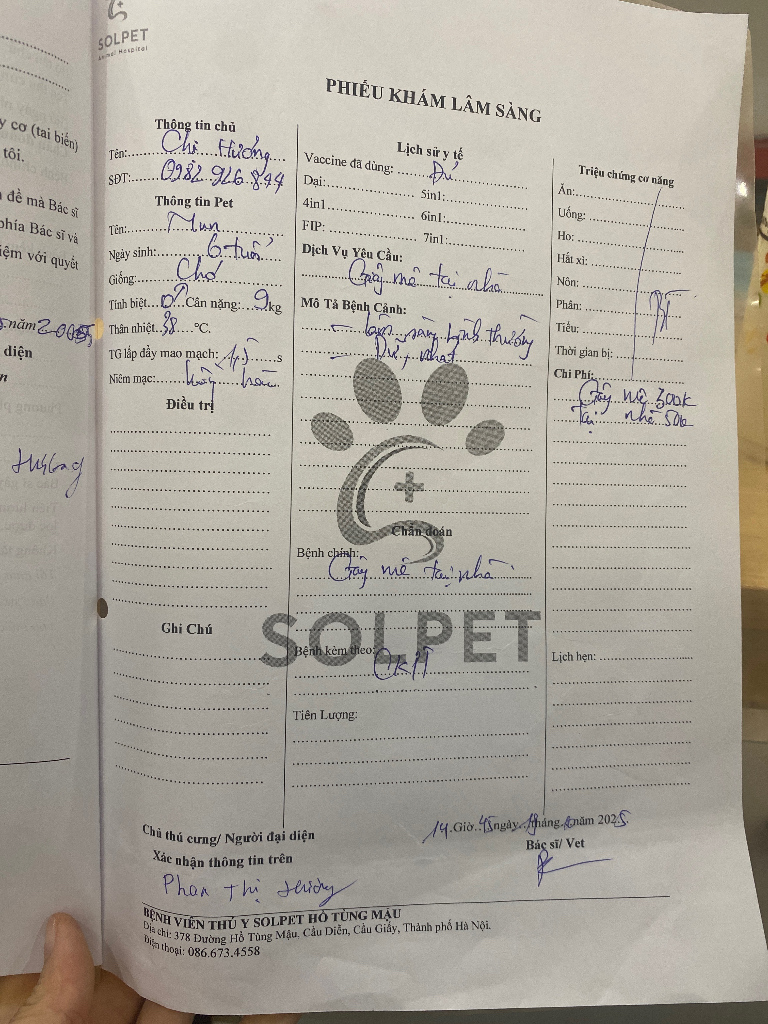 SOLPET
Animal Hospital
y cơ (tai biến)
tôi.
đề mà Bác sĩ
phía Bác sĩ và
iệm với quyết
năm 2005
diện
n
PHIẾU KHÁM LÂM SÀNG
Thông tin chủ
Tên: Chị Hương
SĐT: 0982.926.844
Thông tin Pet
Tên: Mun
Ngày sinh: 6 tuổi
Giống: Chó
Tính biệt: ♂ Cân nặng: 9 kg
Thân nhiệt: 38 °C.
TG lấp đầy mao mạch: <1,5 s
Niêm mạc: hồng hào
Điều trị
Ghi Chú
Lịch sử y tế
Vaccine đã dùng: Đủ
Dại: 5in1:
4in1 6in1:
FIP: 7in1:
Dịch Vụ Yêu Cầu:
Gây mê tại nhà
Mô Tả Bệnh Cảnh:
- lâm sàng bình thường
- Dữ, nhát
Chẩn đoán
Bệnh chính:
Gây mê tại nhà
SOLPET
Bệnh kèm theo:
Tiên Lượng:
Triệu chứng cơ năng
Ăn:
Uống:
Ho:
Hắt xì:
Nôn:
Phân: BT
Tiểu:
Thời gian bị:
Chi Phí:
Gây mê 300k
Tại nhà 50k
Lịch hẹn:
14 Giờ 45 ngày 19 tháng 6 năm 2025
Bác sĩ/ Vet
Chủ thú cưng/ Người đại diện
Xác nhận thông tin trên
Phan Thị Hương
BỆNH VIỆN THÚ Y SOLPET HỒ TÙNG MẬU
Địa chỉ: 378 Đường Hồ Tùng Mậu, Cầu Diễn, Cầu Giấy, Thành phố Hà Nội.
Điện thoại: 086.673.4558